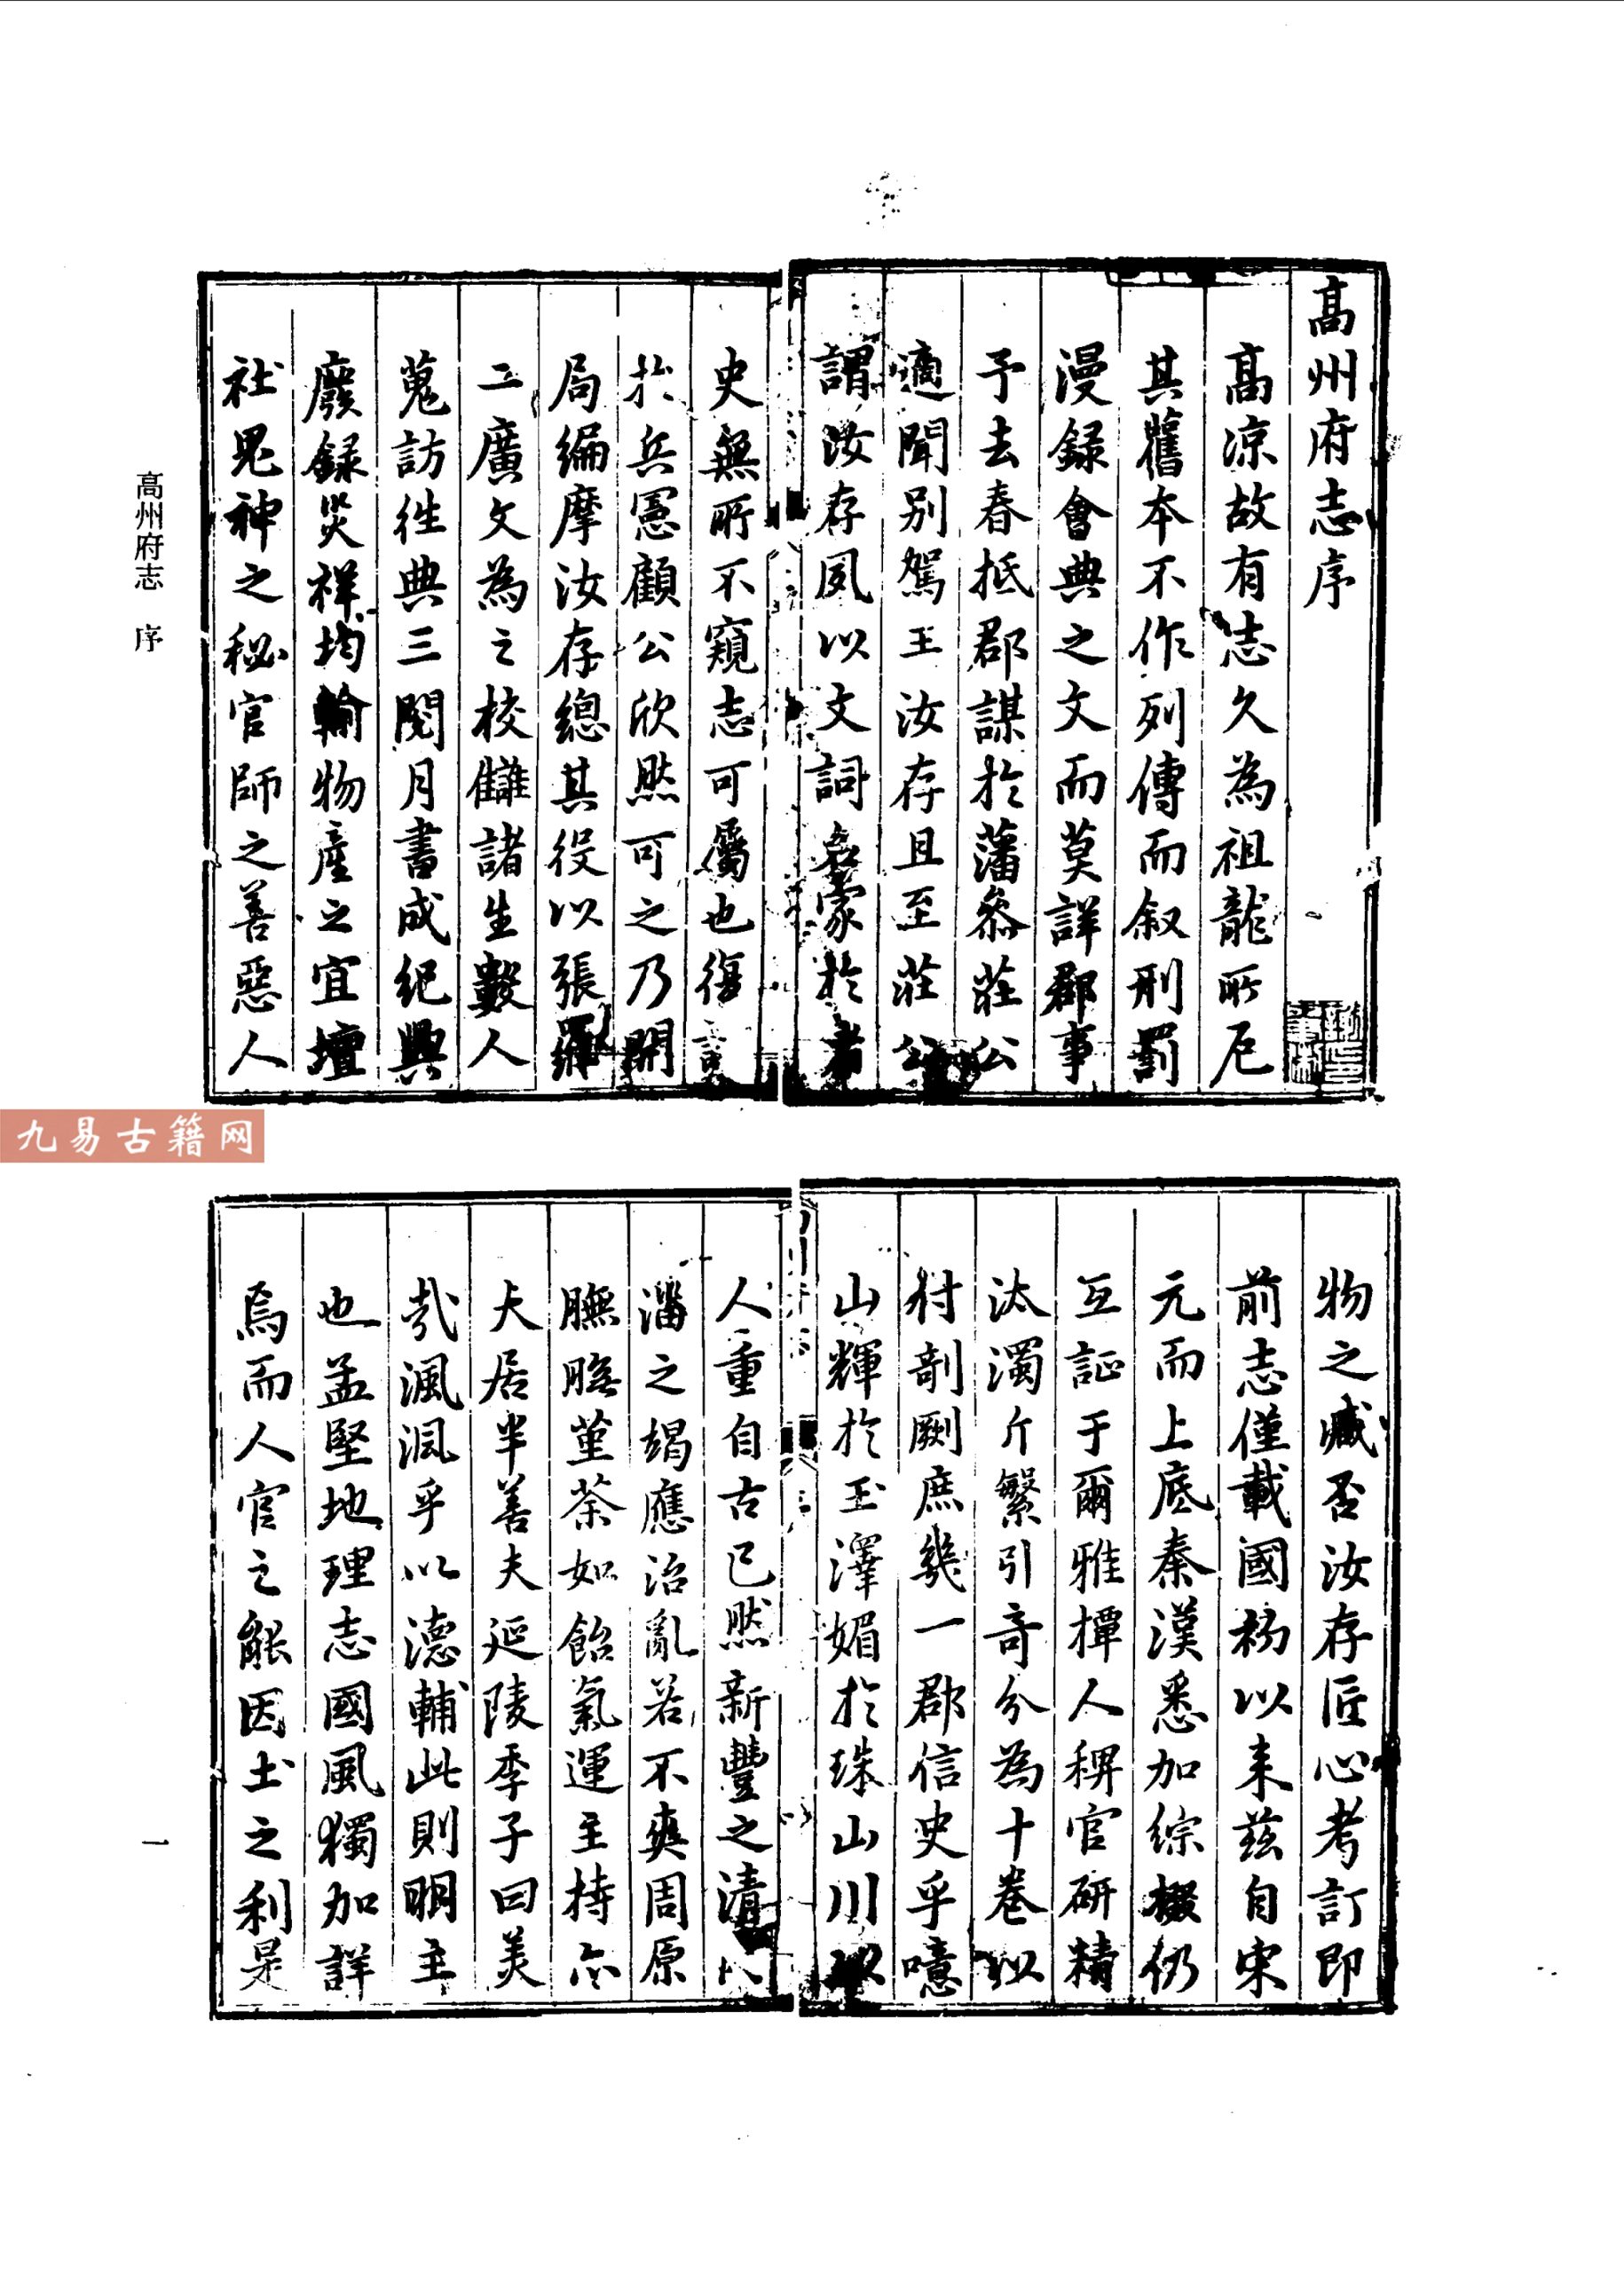 高州府志序
高凉故有志久為祖龍所厄
其舊本不作列傳而叙刑罰
漫録會典之文而莫詳郡事
予去春抵郡謀於藩叅莊公
適聞别駕王汝存且至莊公
謂汝存夙以文詞名家於書
史無所不窺志可屬也復言
於兵憲顧公欣然可之乃開
局編摩汝存總其役以張羅
二廣文為之校讎諸生數人
蒐訪徃典三閱月書成紀興
廢録災祥均輸物産之宜壇
社鬼神之秘官師之善惡人
物之臧否汝存匠心考訂即
前志僅載國初以来兹自宋
元而上底秦漢悉加綜掇仍
互証于爾雅撢人稗官研精
汰濁斤繁引奇分為十卷以
付剞劂庶幾一郡信史乎噫
山輝於玉澤媚於珠山川以
人重自古已然新豐之清八
淄之竭應治亂若不爽周原
膴膴堇荼如飴氣運主持亦
夫居半善夫延陵季子曰美
哉渢渢乎以德輔此則明主
也孟堅地理志國風獨加詳
焉而人官之能因土之利是
高州府志 序
一
九易古籍网